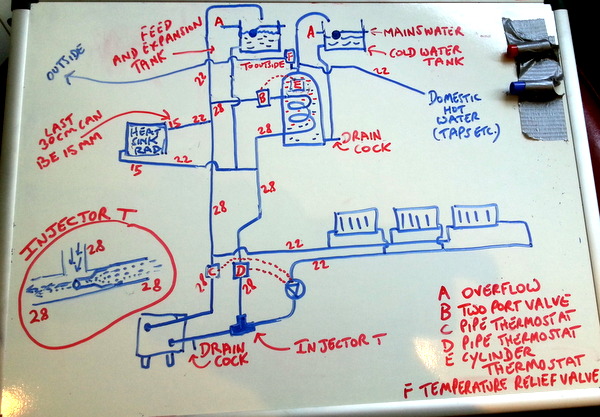 FEED
AND EXPANSION
TANK
A
A
MAINS WATER
COLD WATER
TANK
OUTSIDE
TO OUTSIDE
F
22
22
E
B
28
DOMESTIC
HOT
WATER
(TAPS ETC.)
LAST
30CM CAN
BE 15MM
15
22
HEAT
SINK
RAD
28
DRAIN
COCK
22
15
28
28
INJECTOR T
28
28
28
22
22
C
D
28
28
DRAIN
COCK
INJECTOR T
A OVERFLOW
B TWO PORT VALVE
C PIPE THERMOSTAT
D PIPE THERMOSTAT
E CYLINDER
THERMOSTAT
F TEMPERATURE RELIEF VALVE